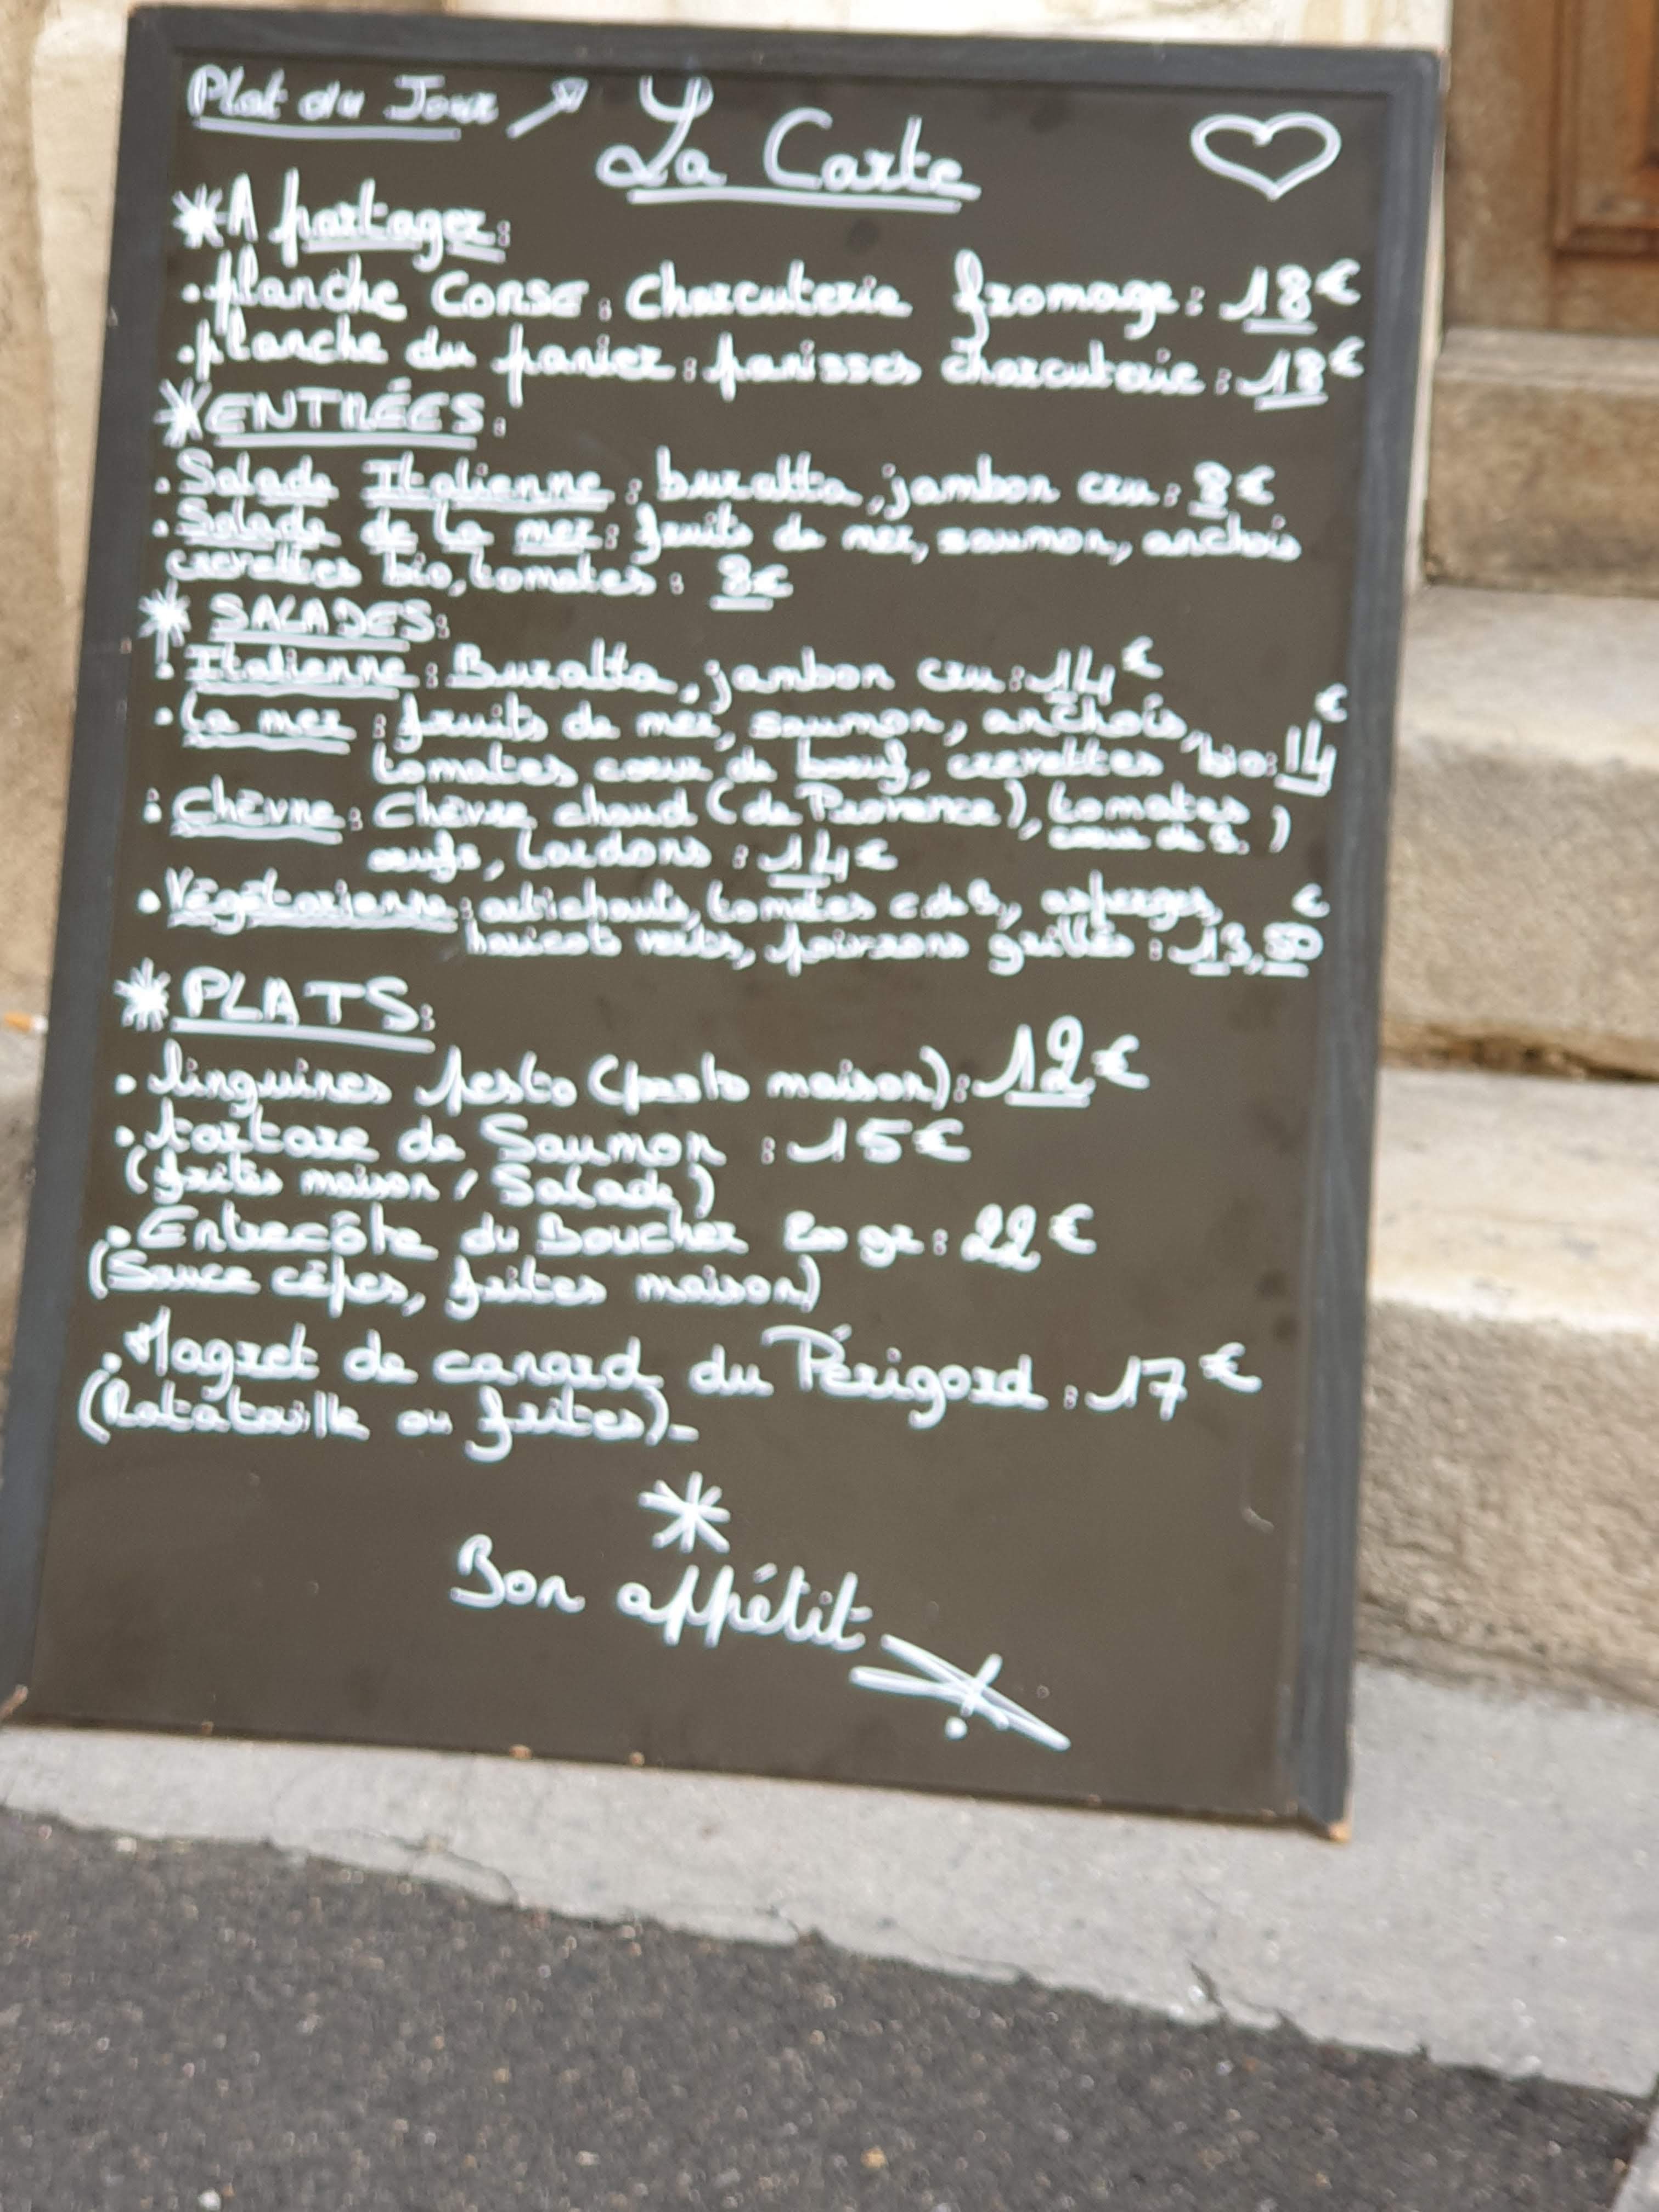 Plat du Jour
La Carte
A partager:
.planche CORSE: charcuterie fromage: 18€
.planche du panier: panisses charcuterie: 18€
ENTRÉES:
.Salade Italienne: buratta, jambon cru: 8€
.Salade de la mer: fruits de mer, saumon, anchois
crevettes bio, tomates: 8€
SALADES:
.Italienne: Buratta, jambon cru: 14€
.La mer: fruits de mer, saumon, anchois,
tomates coeur de boeuf, crevettes bio: 14€
.Chèvre: Chèvre chaud (de Provence), tomates
coeur de B.)
oeufs, lardons: 14€
.Végétarienne: artichauts, tomates c de B, asperges,
haricot verts, poivrons grillés: 13,50€
PLATS:
.linguines pesto (pesto maison): 12€
.tartare de Saumon: 15€
(frites maison / Salade)
.Entrecôte du Boucher gr: 22€
(Sauce cêpes, frites maison)
.Magret de canard du Périgord: 17€
(Ratatouille ou frites)-
Bon appétit